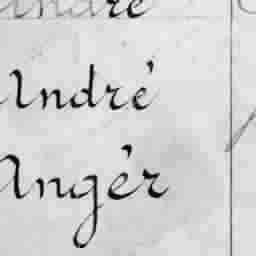 André
André
Angér